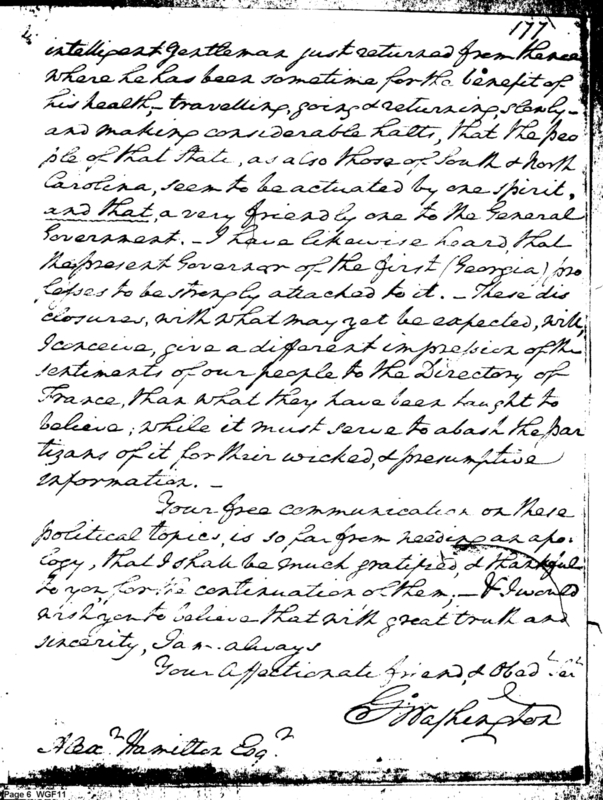 177
intelligent gentleman just returned from thence
where he has been sometime for the benefit of
his health,—travelling, going & returning, slowly—
and making considerable halts, that the peo
ple of that State, as also those of South & North
Carolina, seem to be actuated by one spirit,
and that, a very friendly one to the General
Government.—I have likewise heard, that
the present Governor of the first (Georgia) pro
fesses to be strongly attached to it.—These dis
closures, with what may yet be expected, will,
I conceive, give a different impression of the
sentiments of our people to the Directory of
France, than what they have been taught to
believe; while it must serve to abash the par
tizans of it for their wicked, & presumptive
information.—
Your free communication on these
political topics, is so far from needing an apo-
logy, that I shall be much gratified, & thankful
to you, for the continuation of them;—& I would
wish you to believe that with great truth and
sincerity, I am always
Your Affectionate friend, & Obedt Ser
Go Washington
Alexr Hamilton Esqr
Page 6 WGF11